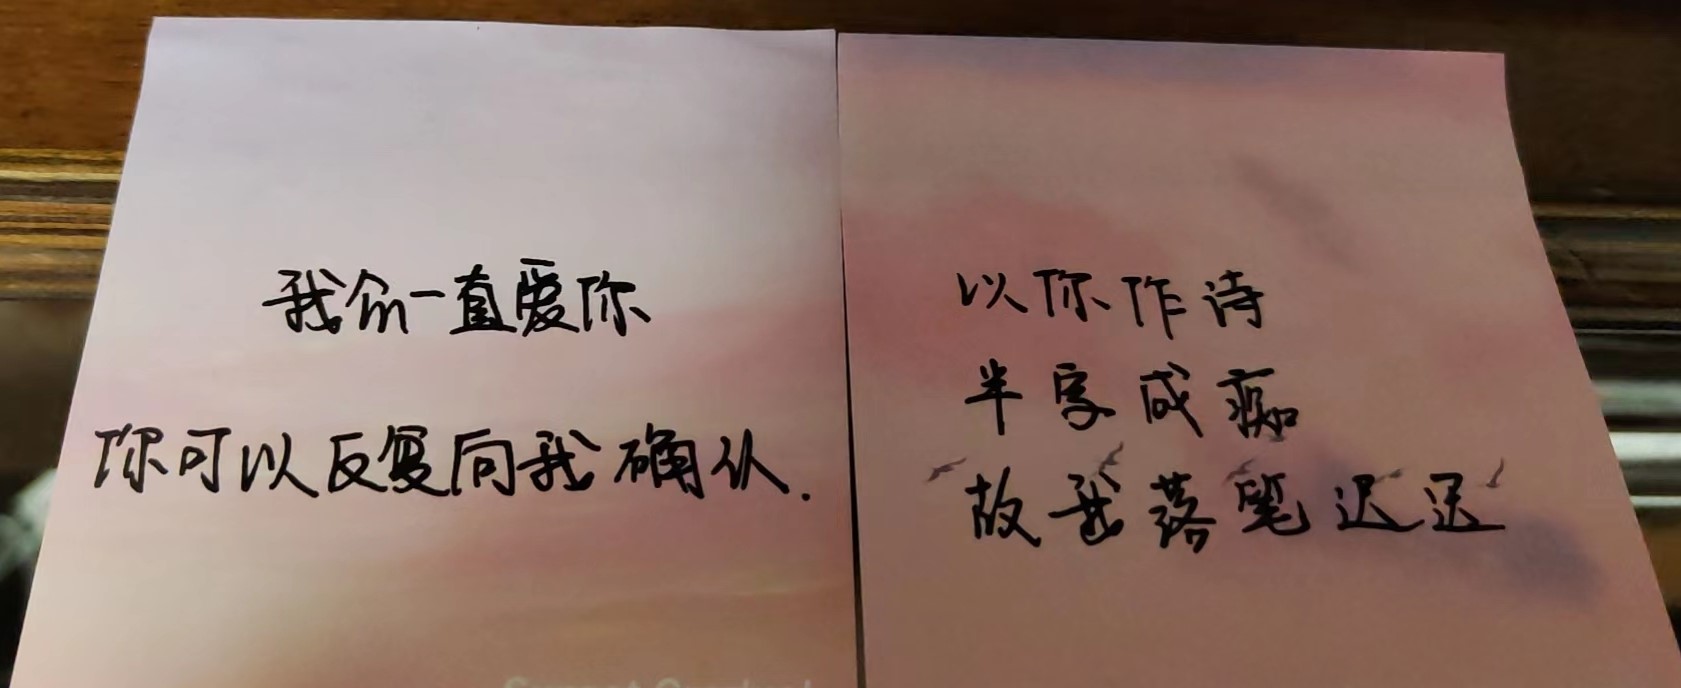 我会一直爱你
你可以反复向我确认.
以你作诗
半字成痴
故我落笔迟迟